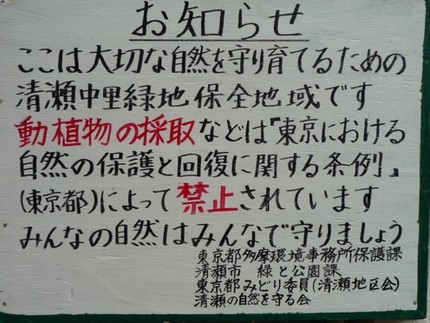 お知らせ
ここは大切な自然を守り育てるための
清瀬中里緑地保全地域です
動植物の採取などは『東京における
自然の保護と回復に関する条例』
(東京都)によって禁止されています
みんなの自然はみんなで守りましょう
東京都多摩環境事務所保護課
清瀬市 緑と公園課
東京都みどり委員(清瀬地区会)
清瀬の自然を守る会